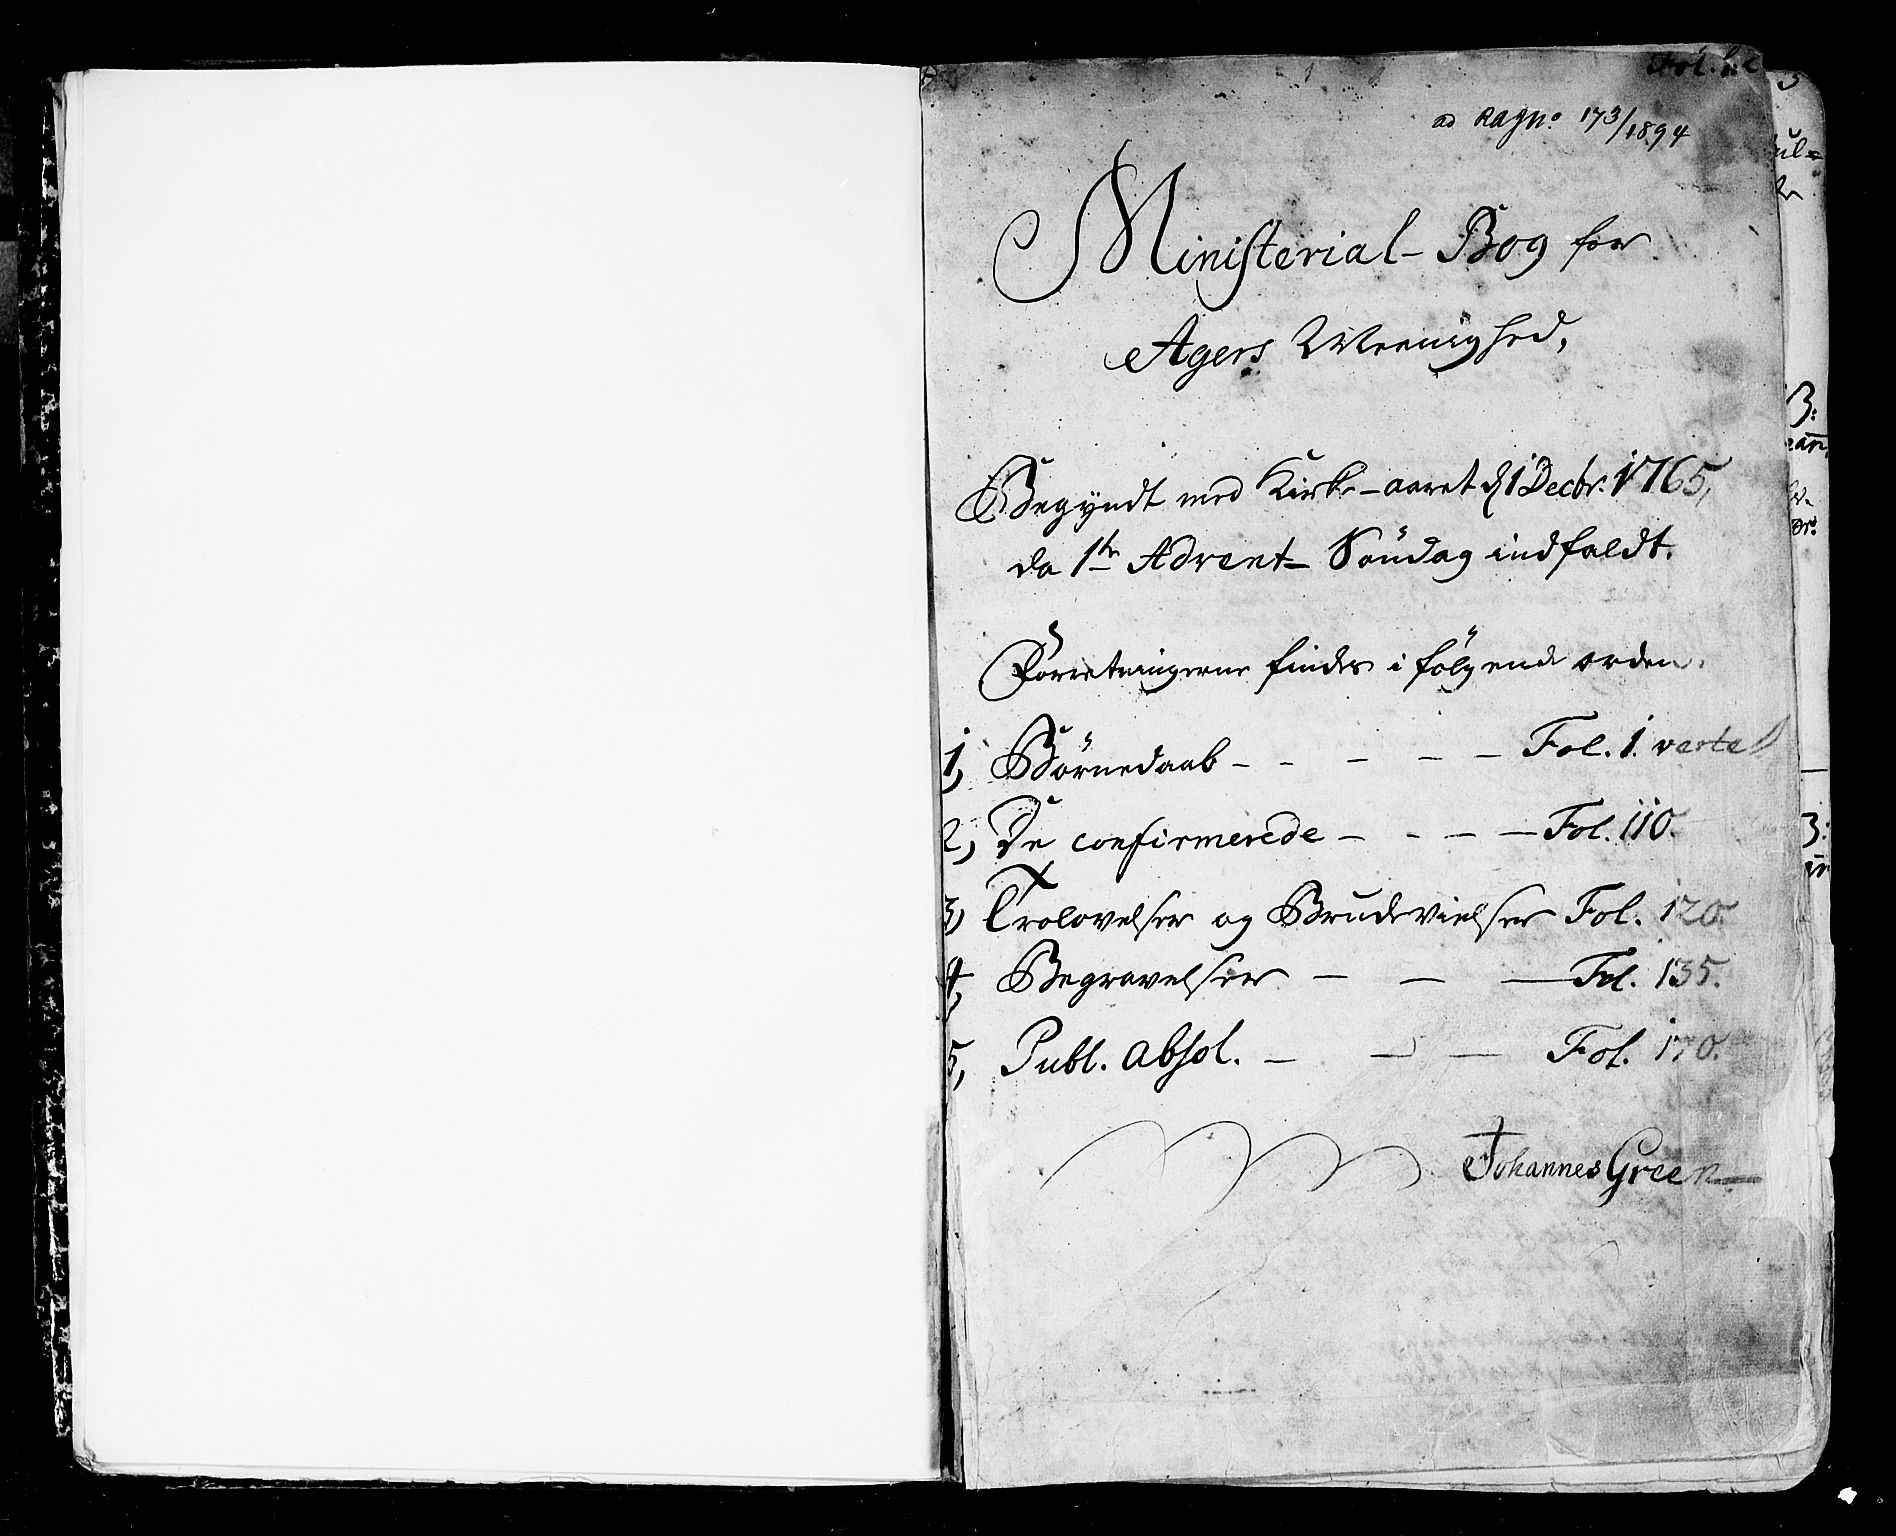 Fol. 1.
ad Ragno. 173/1894
Ministerial-Bog for
Agers Meenighed,
Begyndt med Kirke-aaret d 1 Decbr. 1765,
da 1te Advent- Söndag indfaldt.
Forretningerne findes i fölgende orden.
1, Börnedaab - - - - - Fol. 1. verte
2, De confirmerede - - - - Fol. 110.
3, Trolovelser og Brudevielser Fol. 120.
4, Begravelser - - - Fol. 135.
5, Publ. absol. - - - Fol. 170.
Johannes Green